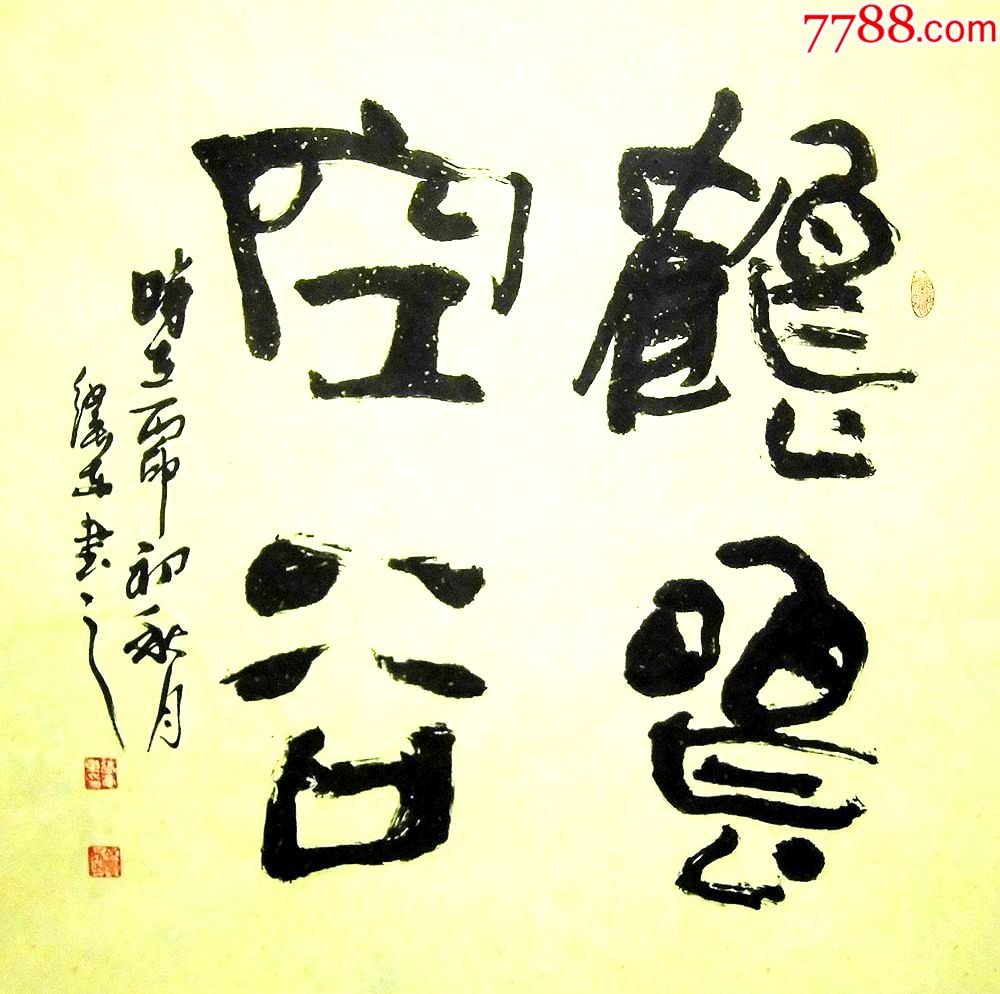 7788.com
鶴鳴
空谷
時在丁卯初秋月
書之